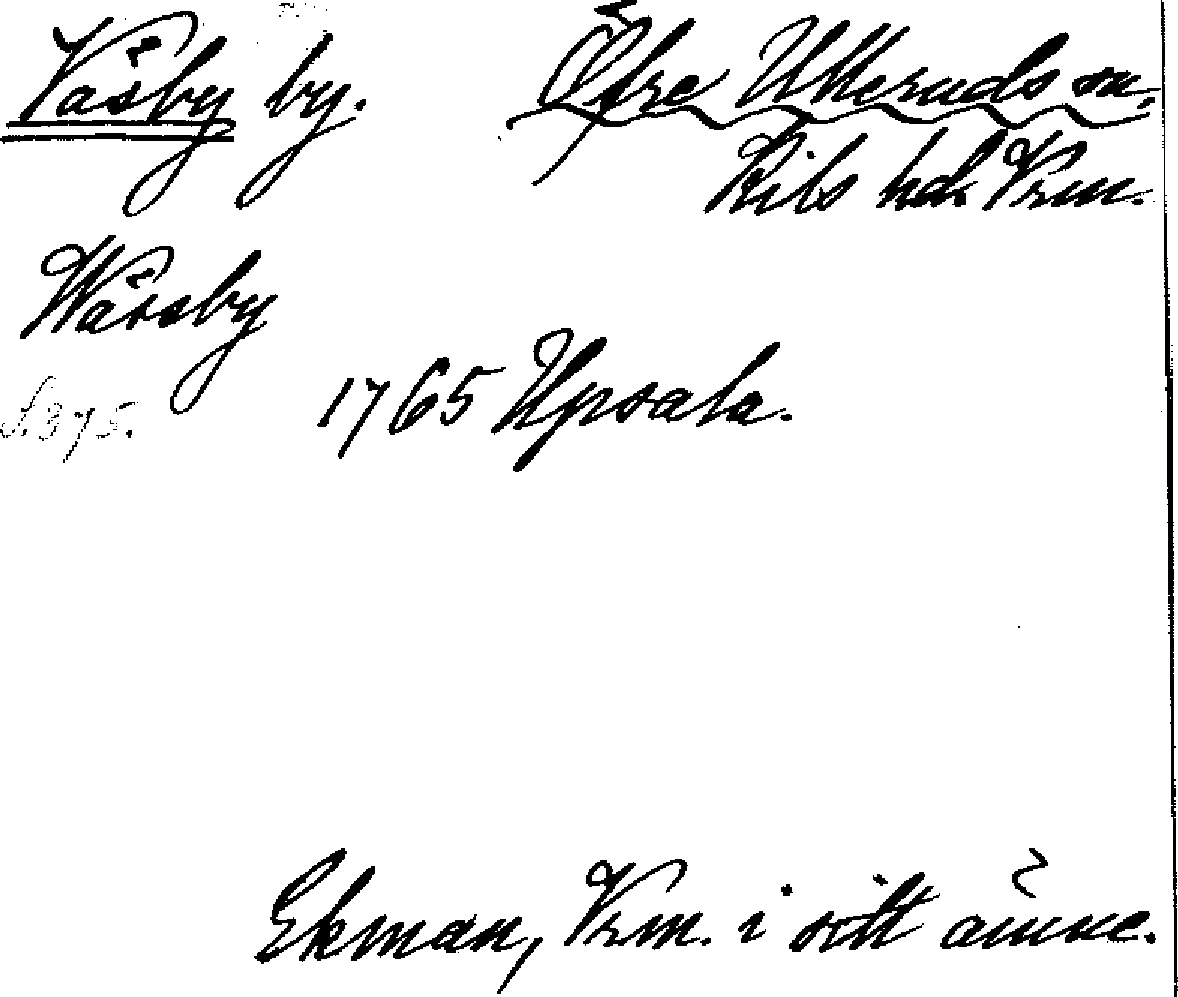 Väsby by. Öfre Ulleruds sn,
Kils hd. Vrm.
Wäsby
S. 375. 1765 Upsala.
Ekman, Vrm. i sitt ämne.